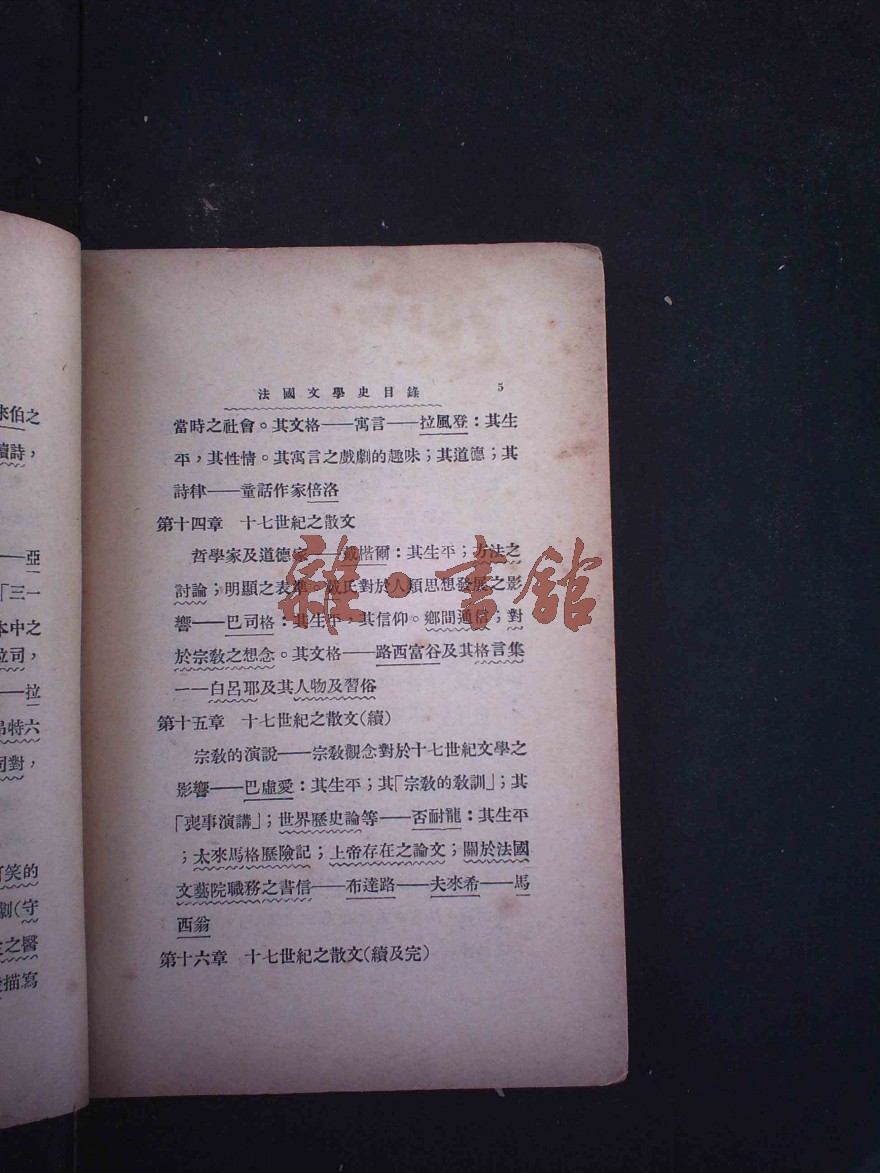 法國文學史目錄 5
當時之社會。其文格——寓言——拉風登：其生
平，其性情。其寓言之戲劇的趣味；其道德；其
詩律——童話作家倍洛
第十四章 十七世紀之散文
哲學家及道德家——戴楷爾：其生平；方法之
討論；明顯之表準。戴氏對於人類思想發展之影
響——巴司格：其生平，其信仰。鄉間通信；對
於宗教之想念。其文格——路西富谷及其格言集
——白呂耶及其人物及習俗
第十五章 十七世紀之散文(續)
宗教的演說——宗教觀念對於十七世紀文學之
影響——巴虛愛：其生平；其「宗教的教訓」；其
「喪事演講」；世界歷史論等——否耐龍：其生平
；太來馬格歷險記；上帝存在之論文；關於法國
文藝院職務之書信——布達路——夫來希——馬
西翁
第十六章 十七世紀之散文(續及完)
來伯之
續詩，
——亞
「三一
本中之
拉司，
——拉
昂特六
司對，
可笑的
劇(守
之醫
描寫
雜·書館